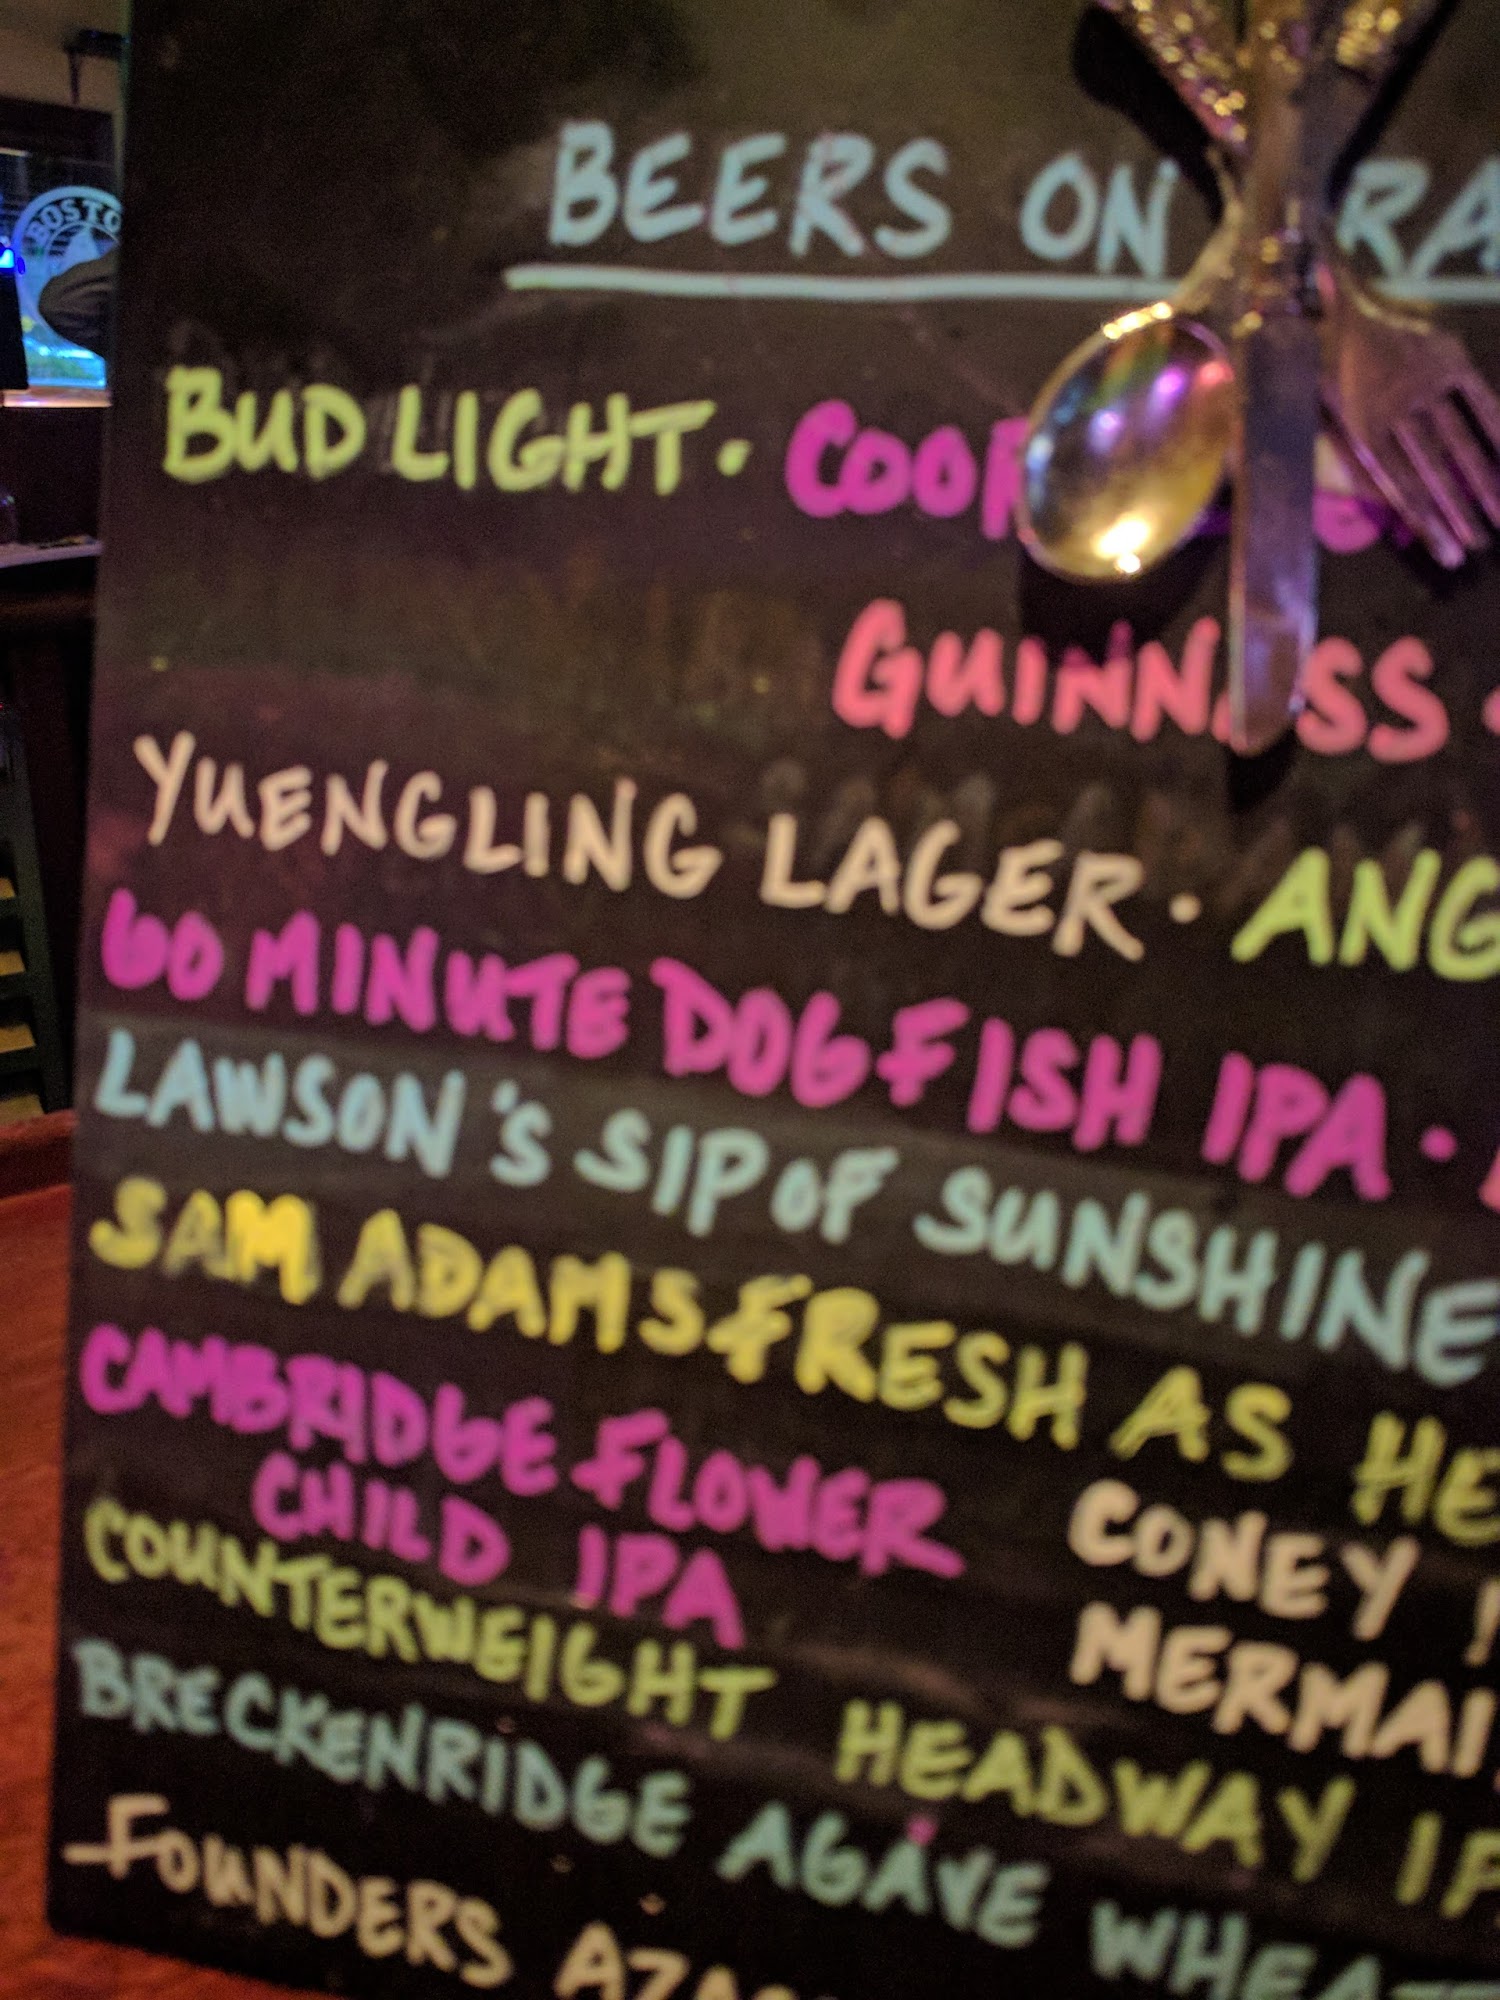 BOSTO
BEERS ON RA
BUD LIGHT.
GUINN SS
YUENGLING LAGER. ANG
60 MINUTE DOGFISH IPA.
LAWSON'S SIP OF SUNSHINE
SAM ADAMS FRESH AS HE
CAMBRIDGE FLOWER
CHILD IPA
CONEY
MERMAI
COUNTERWEIGHT HEADWAY IP
BRECKENRIDGE AGAVE WHEAT
FOUNDERS AZA